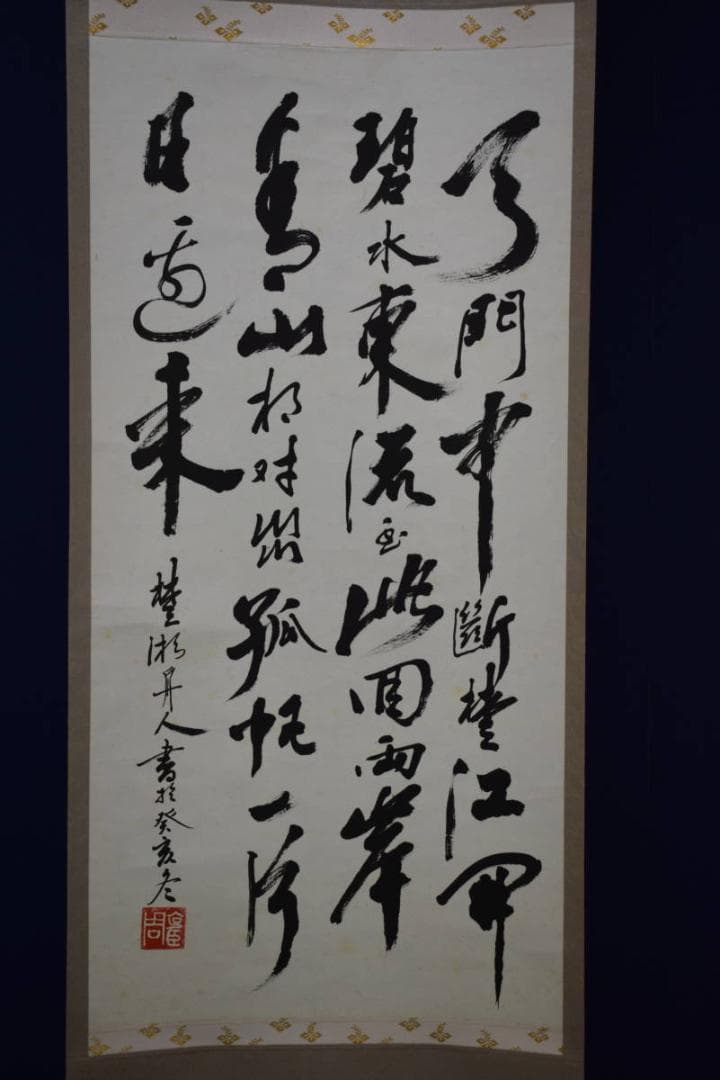 天門中斷楚江開
碧水東流至此回兩岸
青山相对出孤帆一片
日邊来 楚湘人書於癸亥冬